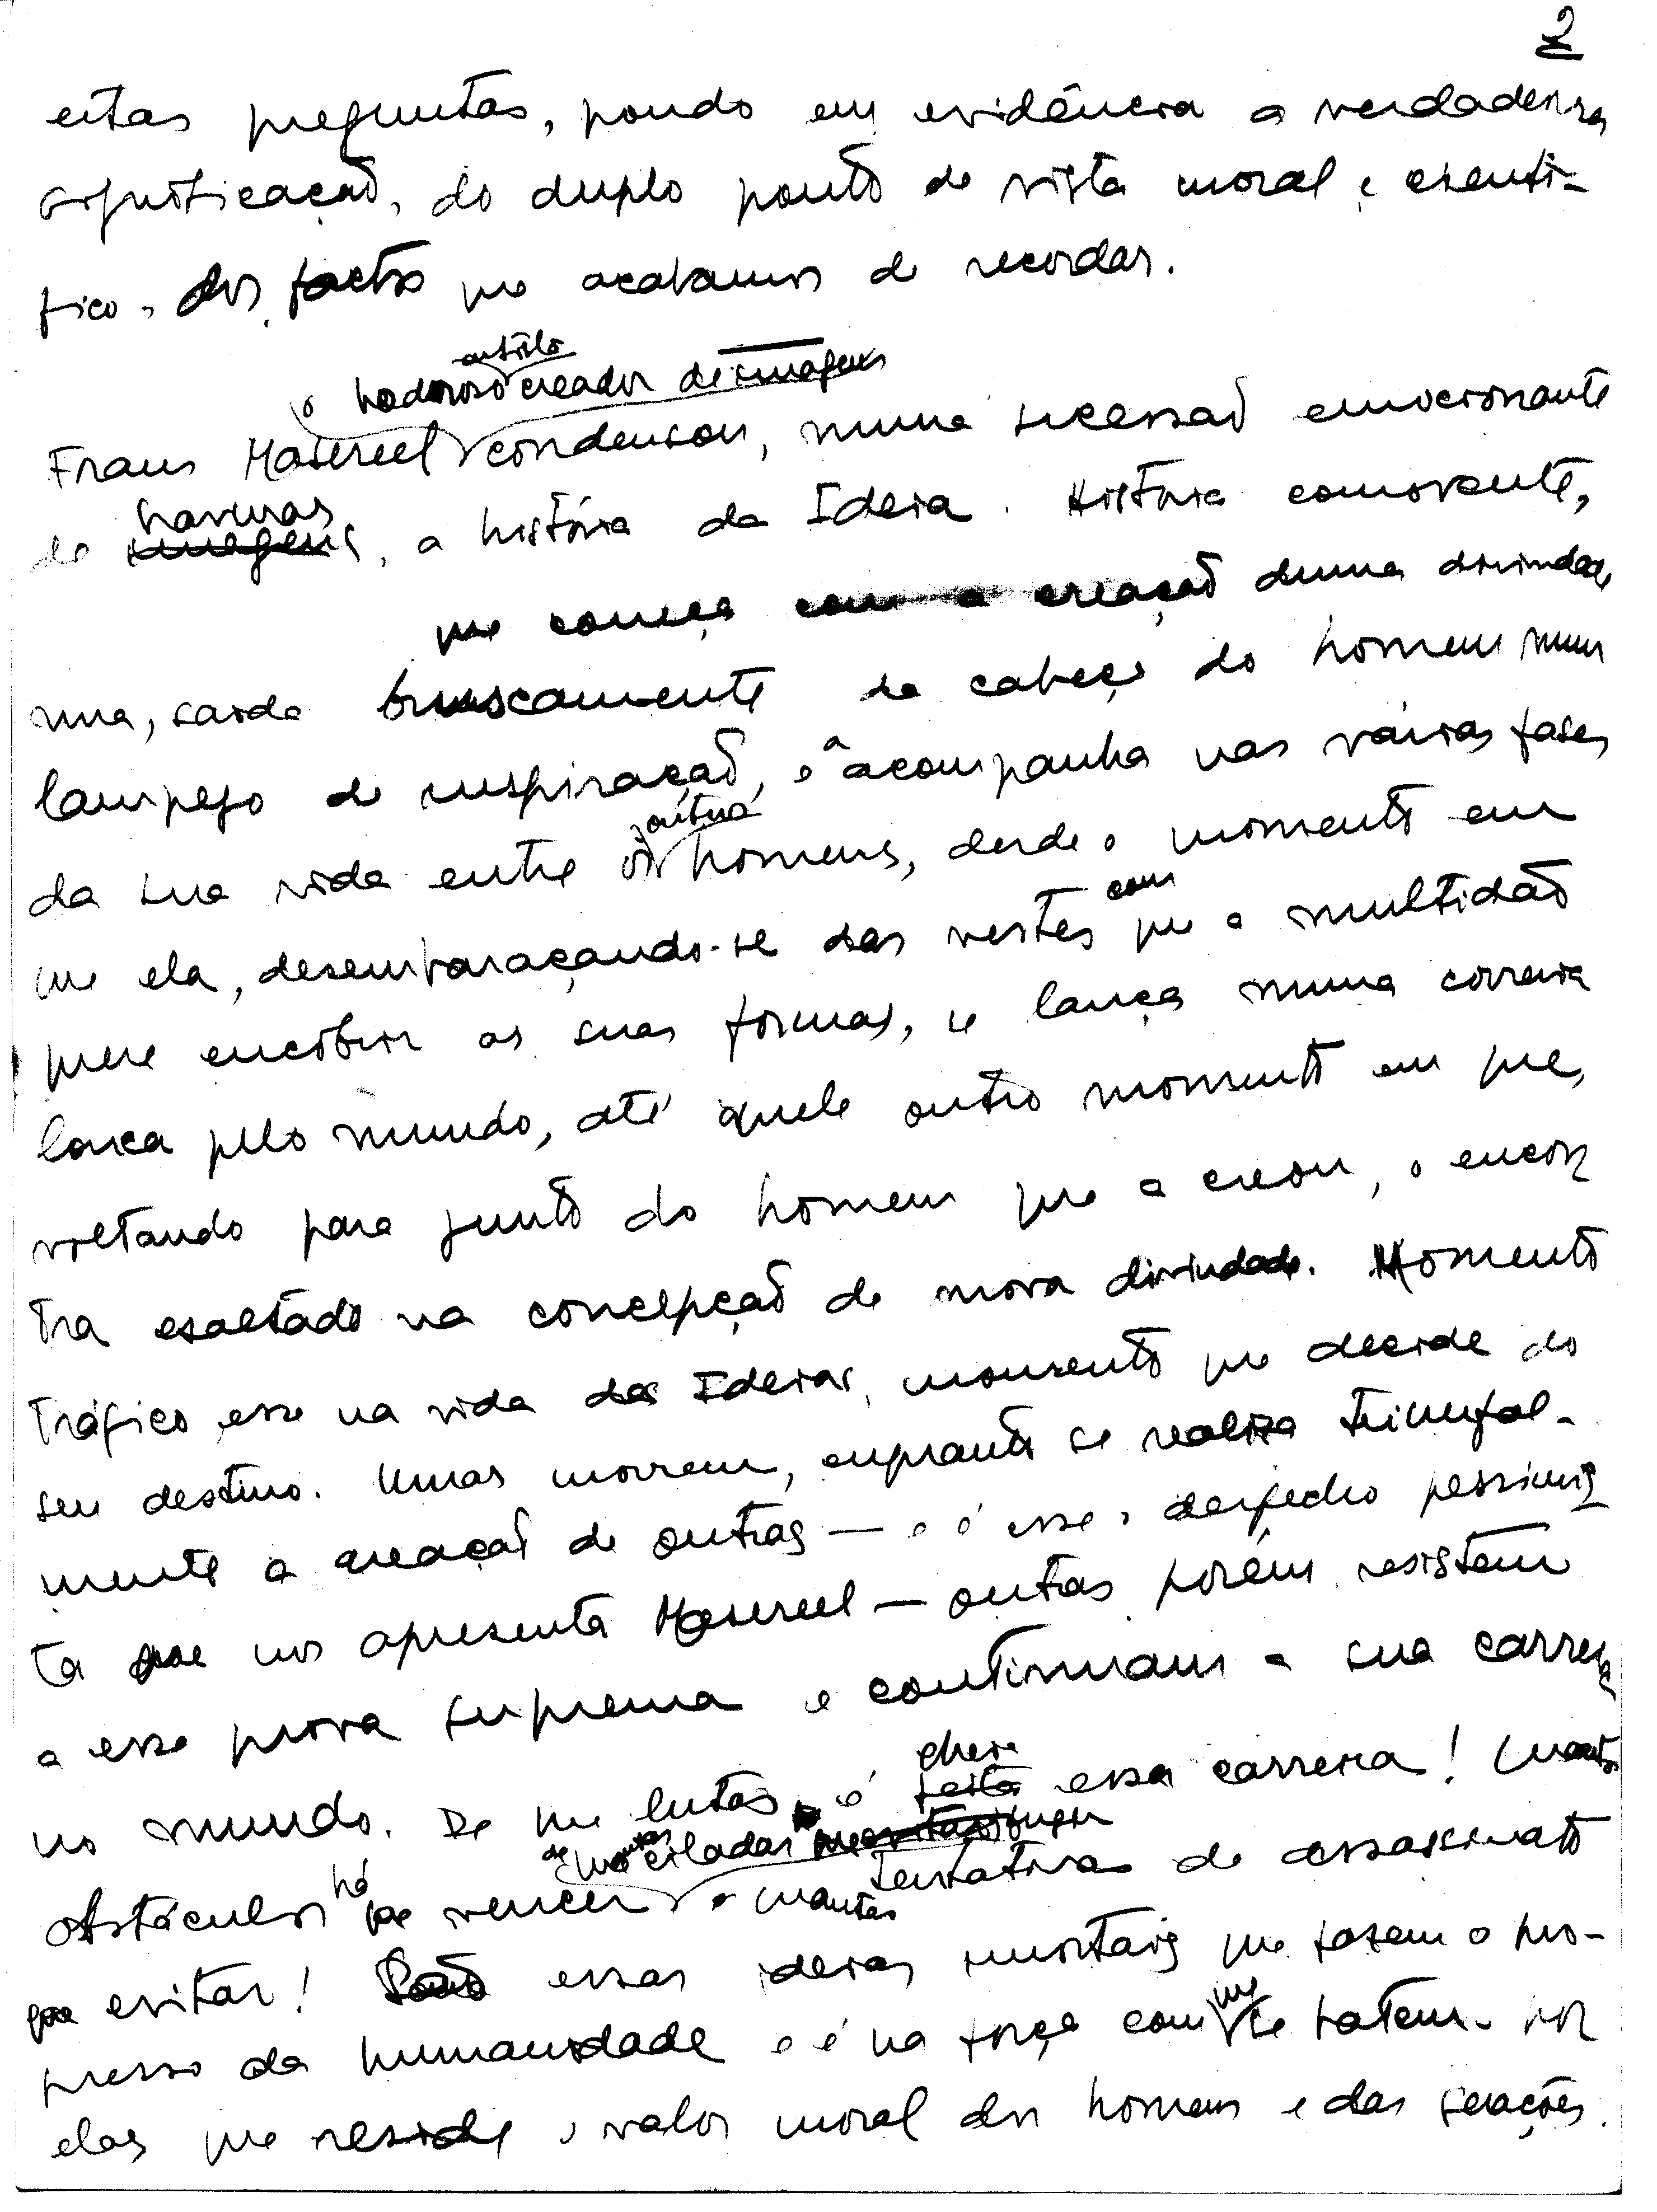 2
estas preguntas, pondo em evidência a verdadeira
significação, do duplo ponto de vista moral e scienti-
fico, dos factos que acabamos de recordar.
artista
o poderoso creador de imagens
Frans Masereel condensou, numa sucessão emocionante
gravuras
de imagens, a história da Ideia. História comovente,
que começa com a creação duma divinda
nua, saida bruscamente da cabeça do homem num
lampejo de inspiração, e a acompanha nas várias fases
outros
da sua vida entre os homens, desde o momento em
com
que ela, desembaraçando-se das vestes que a multidão
quere encobrir as suas formas, se lança numa correria
louca pelo mundo, até àquele outro momento em que,
voltando para junto do homem que a creou, o encon
tra exaltado na concepção de nova divindade. Momento
trágico esse na vida das Ideias, momento que decide do
seu destino. Umas morrem, enquanto se realiza triunfal-
mente a creação de outras — e é esse o desfecho pessimis
ta que nos apresenta Masereel — outras porém resistem
a essa prova suprema e continuam a sua carreira
no mundo. De que lutas é feita essa carreira! Quantos
cheia
de quantas ciladas fugir
obstáculos há que vencer e quantas tentativas de assassinato
que evitar! São essas ideias imortais que fazem o pro-
que
gresso da humanidade e é na força com se batem por
elas que reside o valor moral dos homens e das gerações.